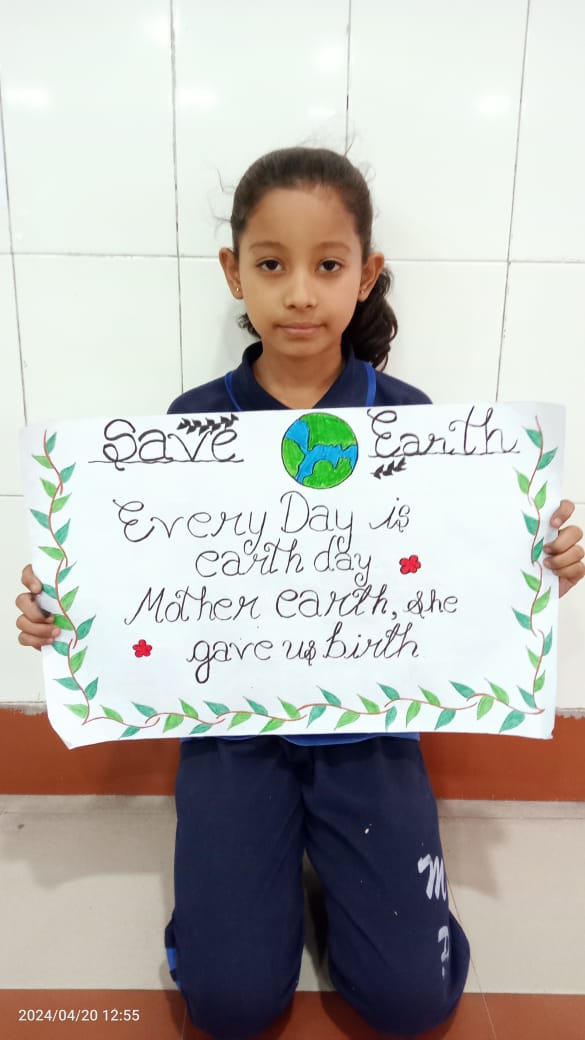 Save Earth
Every Day is
earth day
Mother earth, she
gave us birth
M
P
2024/04/20 12:55